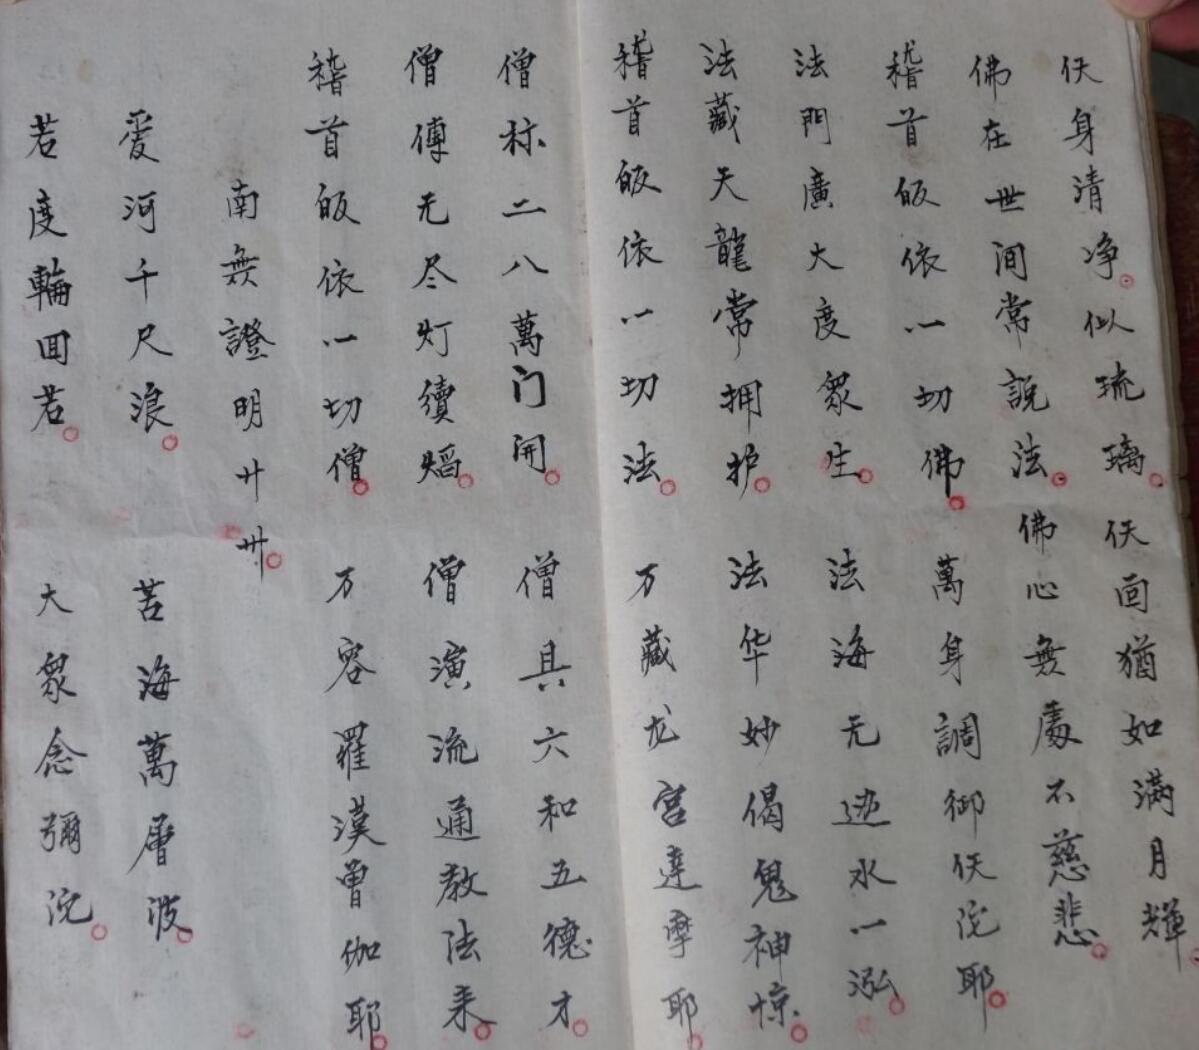 仸身清净似琉璃。仸靣猶如满月輝。
佛在世间常説法。佛心無處不慈悲。
稽首皈依一切佛。萬身調御仸沱耶。
法門廣大度衆生。法海无边水一泓。
法藏天龍常拥护。法华妙偈鬼神惊。
稽首皈依一切法。万藏龙宫達摩耶。
僧称二八萬门開。僧具六和五德才。
僧傅无尽灯續焰。僧演流通教法来。
稽首皈依一切僧。万容羅漢曾伽耶。
南無證明廿卅。
爱河千尺浪。苦海萬層波。
若度輪回若。大衆念彌沱。